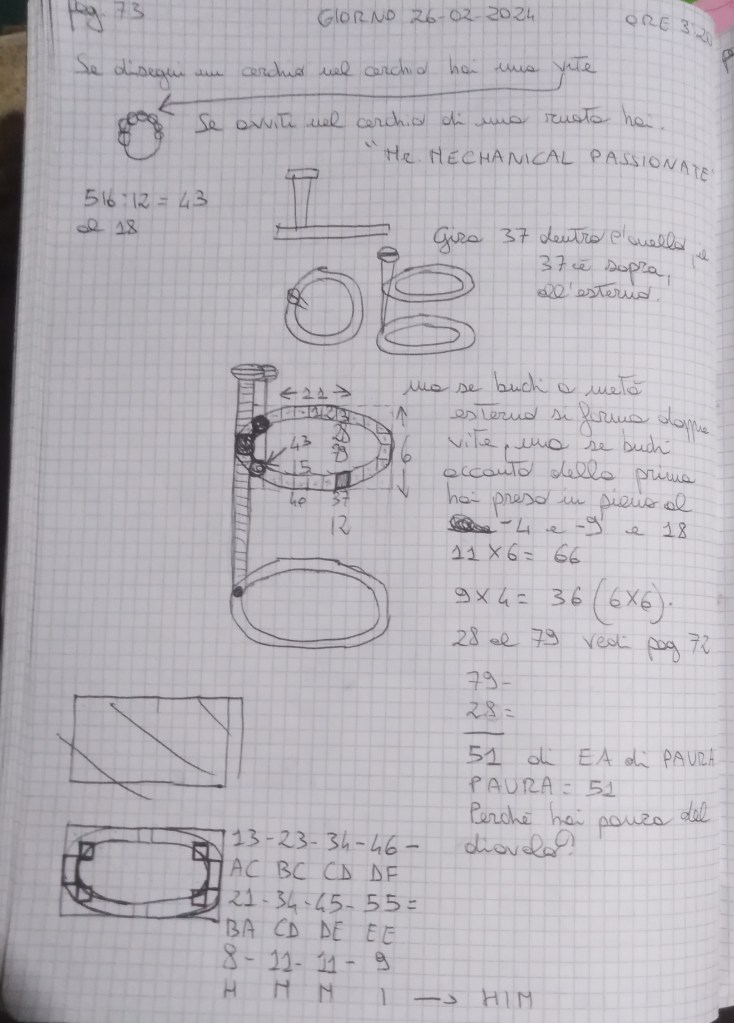 pag 73 GIORNO 26-02-2024 ORE 3:20
Se disegni un cerchio nel cerchio hai una vite
Se avviti nel cerchio di una ruota hai.
"Mr. MECHANICAL PASSIONATE"
516:12 = 43
al 18
Gira 37 dentro è quella, e
37 è sopra,
all'esterno.
ma se buchi a metà
esterno si forma doppia
vite, ma se buchi
accanto della prima
hai preso in pieno al
-4 e -9 e 18
11 × 6 = 66
9 × 4 = 36 (6×6).
28 al 79 vedi pag 72
79-
28=
51 di EA di PAURA
PAURA = 51
Perché hai paura del
diavolo?
← 11 →
1 2 3
28
79
43
15
40 37
12
6
13-23-34-46-
AC BC CD DF
21-34-45-55=
BA CD DE EE
8-11-11-9
H M M I → HIM